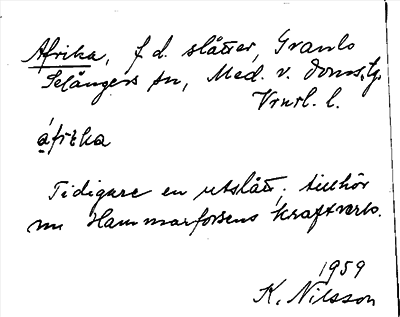 Afrika, f.d. slåtter, Granlo
Selångers sn, Med. v. doms.g.
Vnrl. l.
áfrika
Tidigare en utslått, tillhör
nu Hammarforsens kraftverk.
1959
K. Nilsson